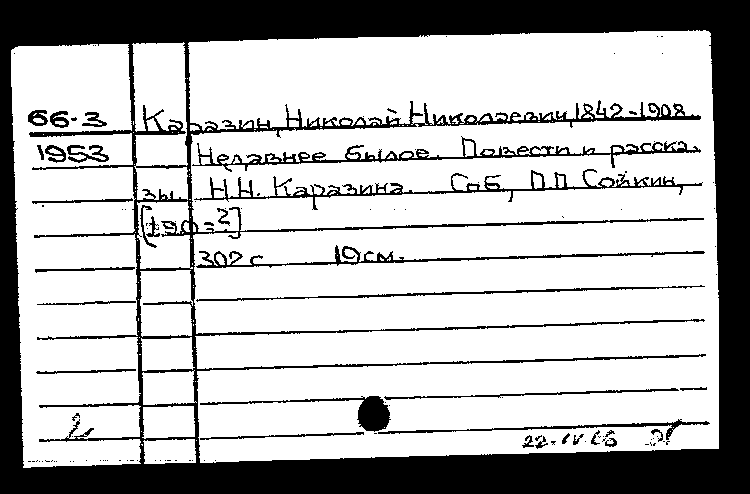 66-3 Каразин, Николай Николаевич, 1842-1908.
1953 Недавнее былое. Повести и расска-
зы. Н.Н. Каразина. Спб, П.П. Сойкин,
[190-?]
302 с 19см.
2
22-IV-66